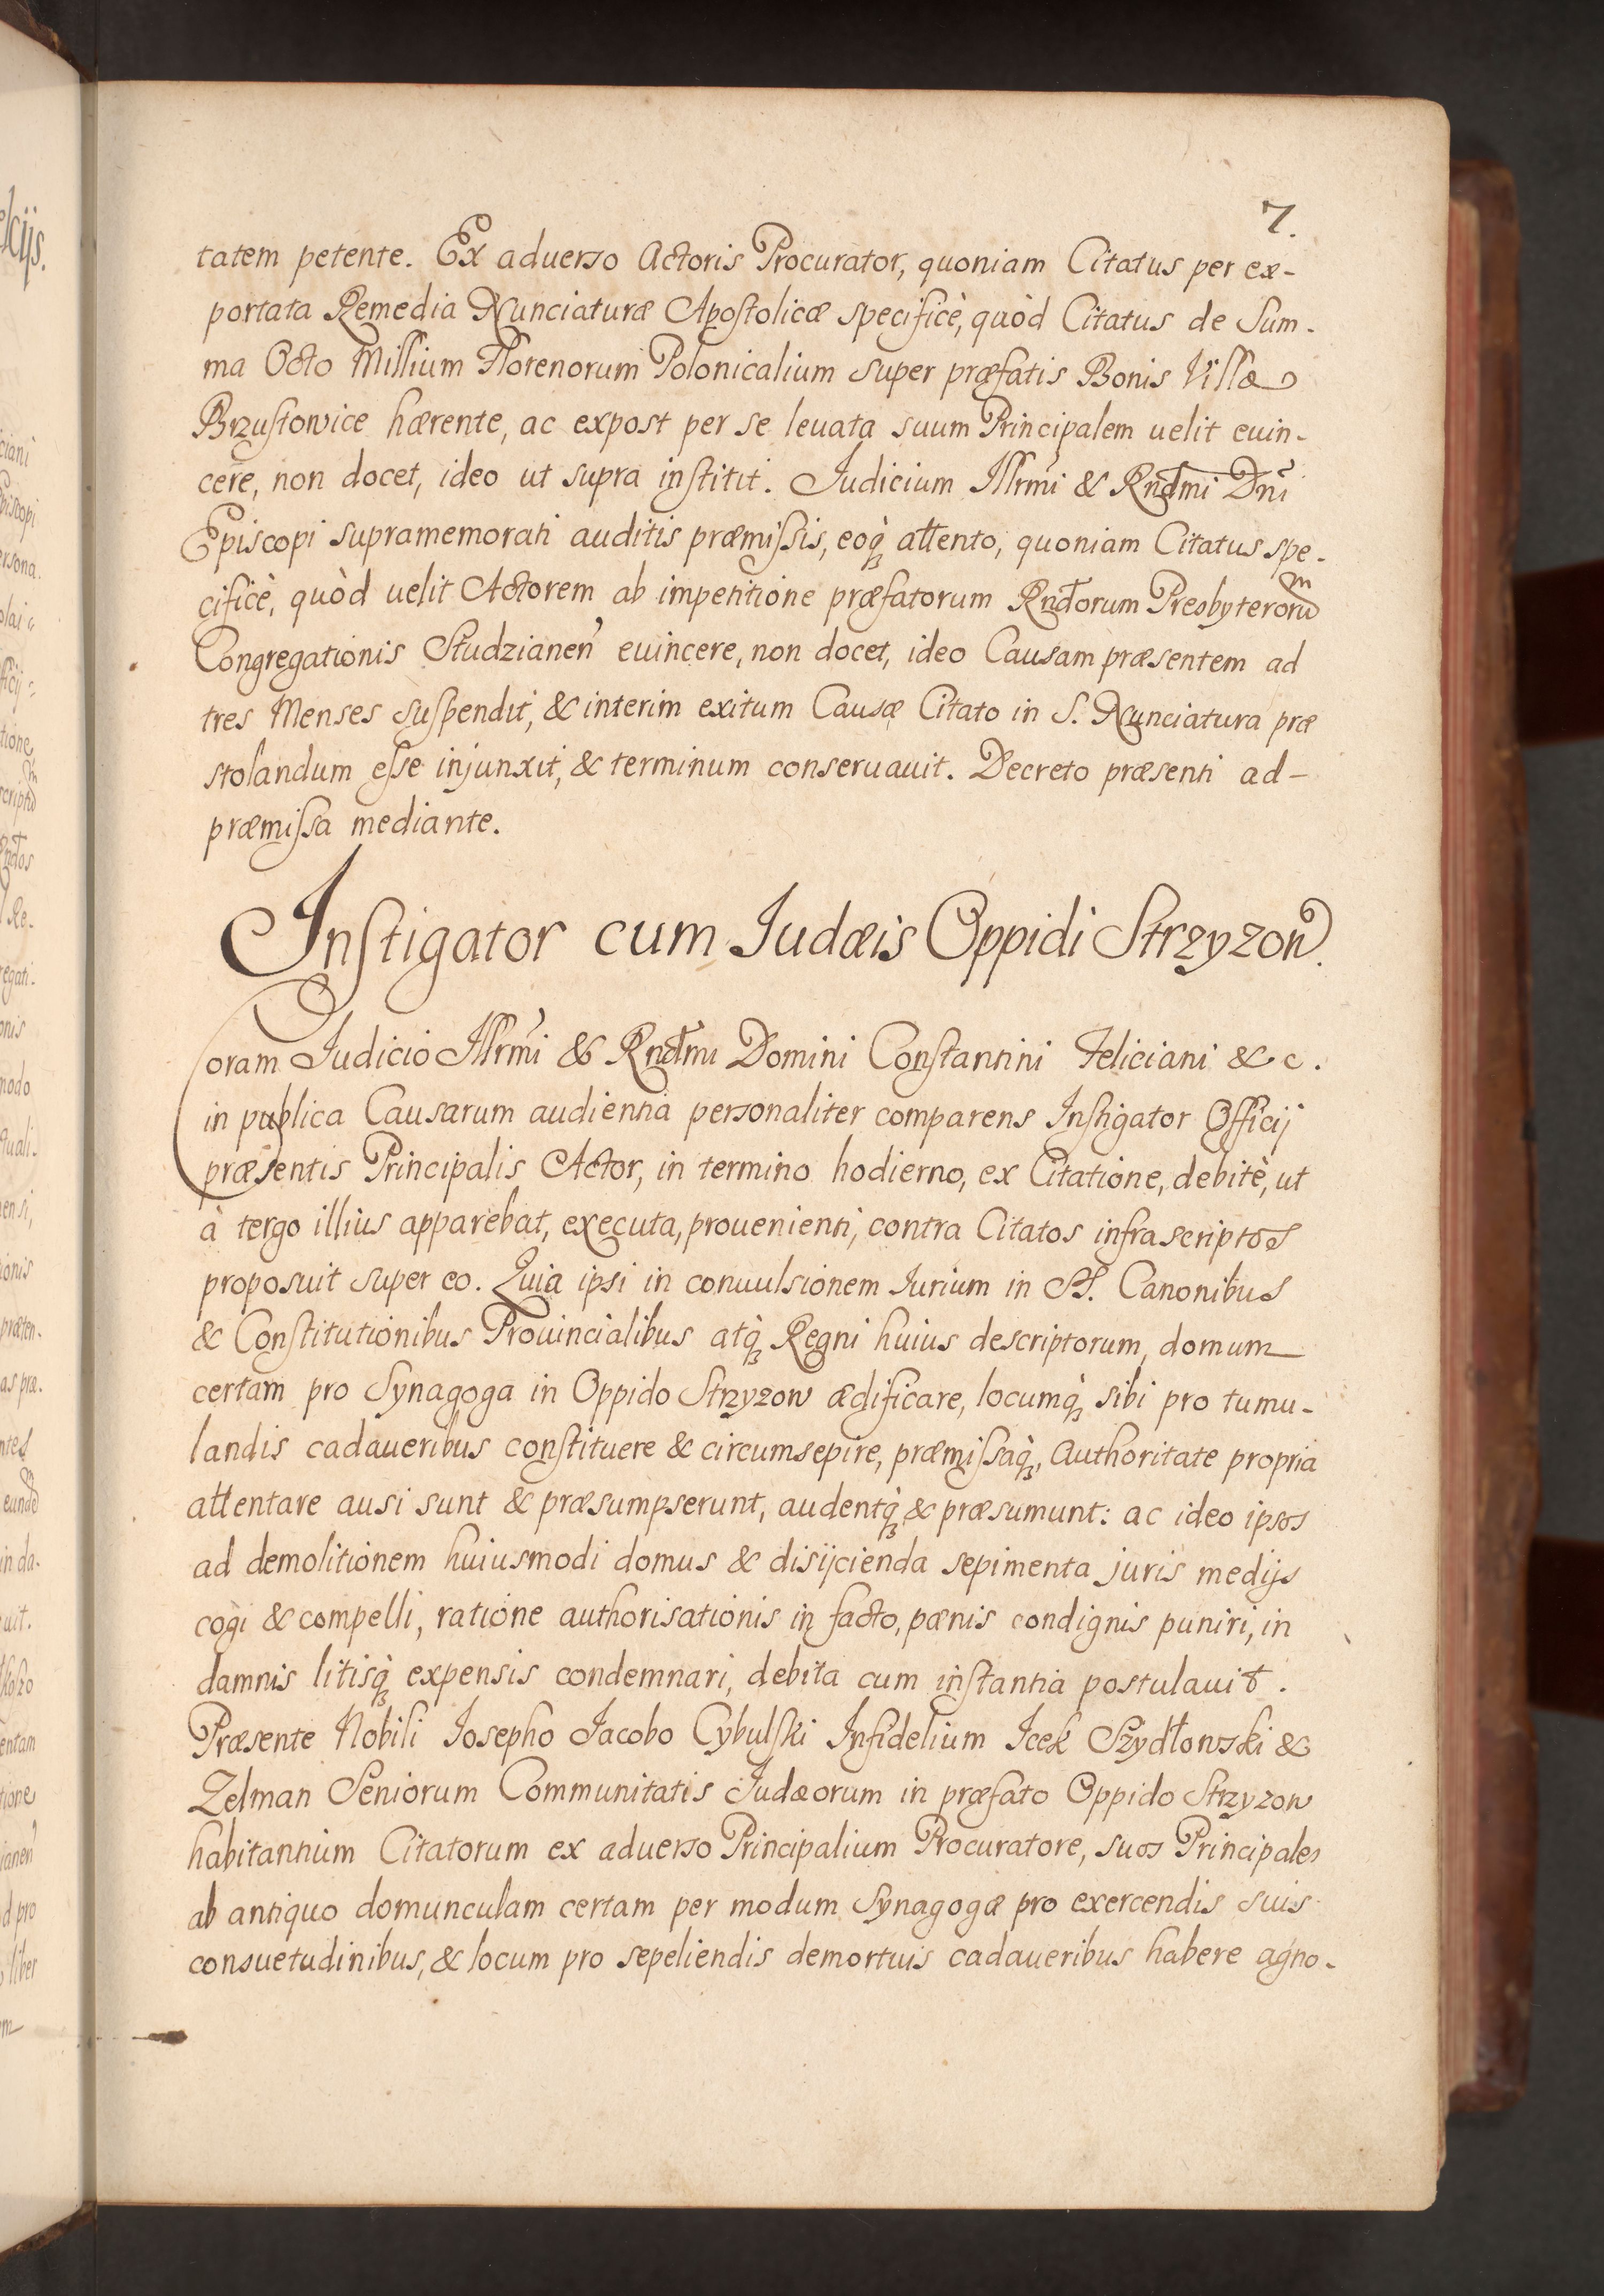 7.
tatem petente. Ex aduerso Actoris Procurator, quoniam Citatus per ex-
portata Remedia Nunciaturæ Apostolicæ specificè, quòd Citatus de Sum-
ma Octo Millium Florenorum Polonicalium super præfatis Bonis Villæ
Brzustowice hærente, ac expost per se leuata suum Principalem uelit euin-
cere, non docet, ideo ut supra institit. Judicium Illrmi & Rndmi Dni
Episcopi supramemorati auditis præmissis, eoq̀ attento, quoniam Citatus spe-
cificè, quòd uelit Actorem ab impetitione præfatorum Rndorum Presbyterorũ
Congregationis Studzianen̉ euincere, non docet, ideo Causam præsentem ad
tres Menses suspendit, & interim exitum Causæ Citato in S. Nunciatura præ
stolandum esse injunxit, & terminum conseruauit. Decreto præsenti ad-
præmissa mediante.
Instigator cum Judæis Oppidi Strzyzon̉.
Coram Judicio Illrmi & Rndmi Domini Constantini Feliciani & c.
in publica Causarum audientia personaliter comparens Instigator Officij
præsentis Principalis Actor, in termino hodierno, ex Citatione, debitè, ut
à tergo illius apparebat, executa, prouenienti, contra Citatos infrascriptos
proposuit super eo. Quia ipsi in conuulsionem Jurium in SS. Canonibus
& Constitutionibus Prouincialibus atq̀ Regni huius descriptorum, domum
certam pro Synagoga in Oppido Strzyzow ædificare, locumq̀ sibi pro tumu-
landis cadaueribus constituere & circumsepire, præmissaq̀, Authoritate propria
attentare ausi sunt & præsumpserunt, audentq̀ & præsumunt: ac ideo ipsos
ad demolitionem huiusmodi domus & disijcienda sepimenta juris medijs
cogi & compelli, ratione authorisationis in facto, pœnis condignis puniri, in
damnis litisq̀ expensis condemnari, debita cum instantia postulauit.
Præsente Nobili Josepho Jacobo Cybulski Infidelium Icek Szydłowski &
Zelman Seniorum Communitatis Judæorum in præfato Oppido Strzyzow
habitantium Citatorum ex aduerso Principalium Procuratore, suos Principales
ab antiquo domunculam certam per modum Synagogæ pro exercendis suis
consuetudinibus, & locum pro sepeliendis demortuis cadaueribus habere agno-